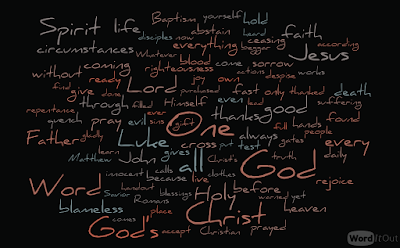 Baptism yourself hold
Spirit life abstain faith
disciples now heard ceasing according
circumstances everything beggar Jesus
Whatever blood come sorrow
coming righteousness actions despise works
without ready Lord joy own
find give done purchased fast only thanked death
repentance through filled Himself even lead good suffering
quench pray evil sins One thanks hands found
Father gladly Luke cross always full gates every
gift put test people
learn Matthew John gives all Christ's truth God daily
innocent calls because live clothes rejoice
Word handout blessings Holy before warned yet
Savior Romans heaven
blameless comes place Christ
God's accept Christian prayed
WordItOut